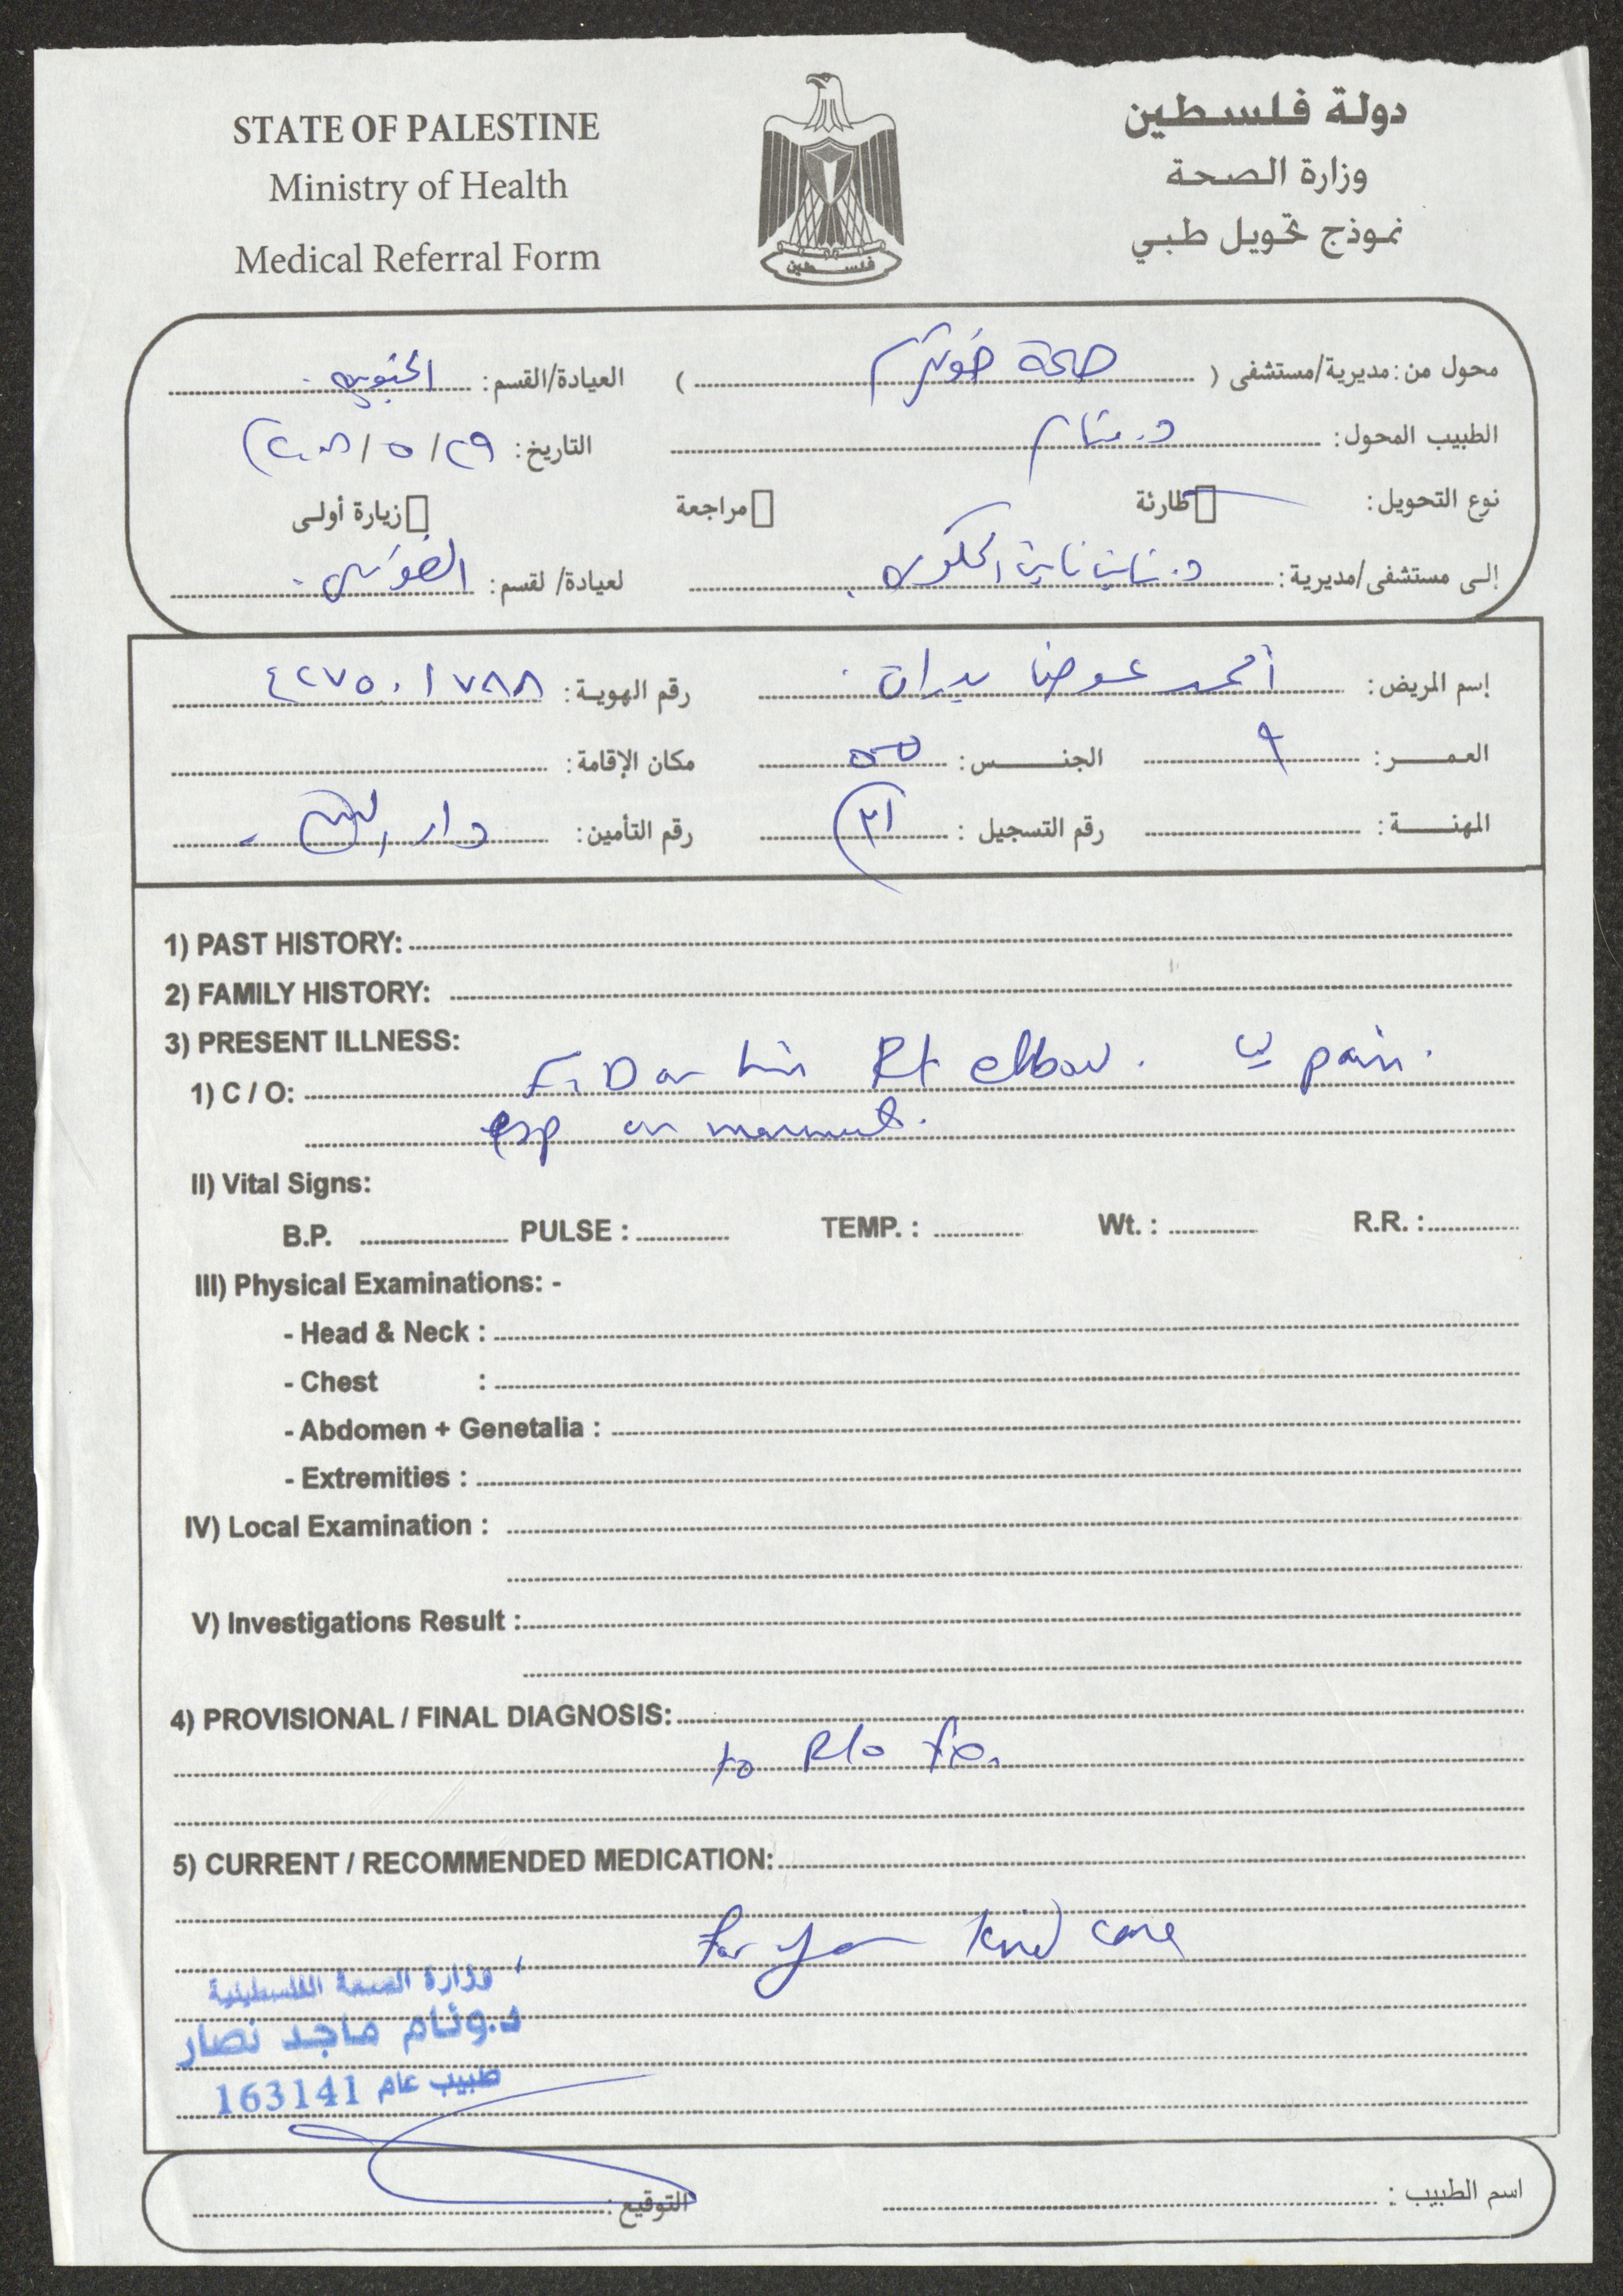 STATE OF PALESTINE
Ministry of Health
Medical Referral Form
دولة فلسطين
وزارة الصحة
نموذج تحويل طبي
فلسطين
محول من: مديرية/مستشفى ( صحة ) العيادة/القسم:
الطبيب المحول: د. التاريخ: ٢٩/٥/
نوع التحويل: طارئة مراجعة زيارة أولى
إلى مستشفى/مديرية: د. لعيادة/ لقسم:
إسم المريض: أحمد عوض بدران رقم الهوية: ٤٢٧٥٠١٧٨٨
العمر: ٩ الجنس: مكان الإقامة:
المهنة: رقم التسجيل: رقم التأمين: دار
1) PAST HISTORY:
2) FAMILY HISTORY:
3) PRESENT ILLNESS:
1) C / O: Rt elbow. pain.
esp on
II) Vital Signs:
B.P. PULSE : TEMP. : Wt. : R.R. :
III) Physical Examinations: -
- Head & Neck :
- Chest :
- Abdomen + Genetalia :
- Extremities :
IV) Local Examination :
V) Investigations Result :
4) PROVISIONAL / FINAL DIAGNOSIS:
to R/o fx.
5) CURRENT / RECOMMENDED MEDICATION:
For your kind care
وزارة الصحة الفلسطينية
د.وئام ماجد نصار
طبيب عام 163141
اسم الطبيب : التوقيع :